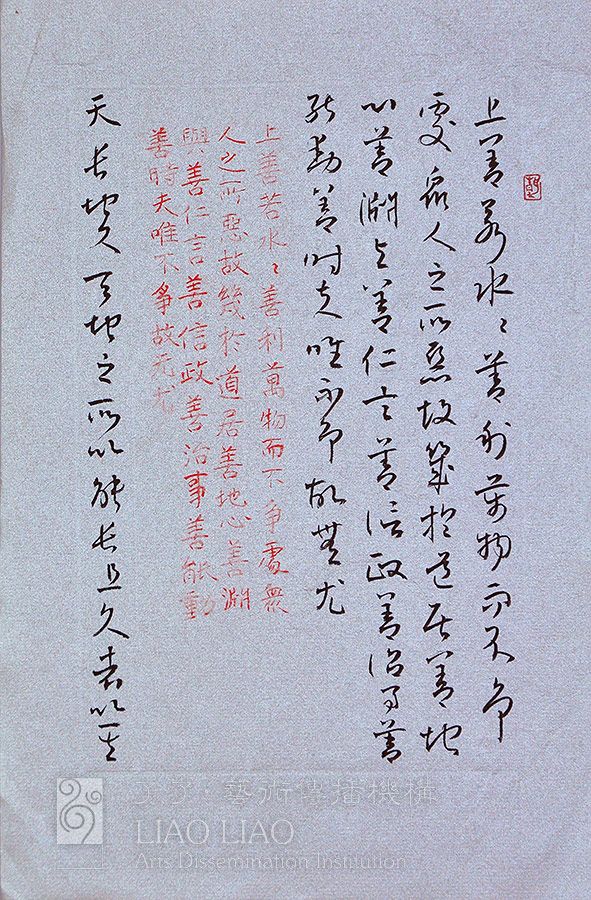 上善若水〻善利萬物而不争
處衆人之所惡故幾於道居善地
心善淵與善仁言善信政善治事善
能動善時夫唯不争故無尤
上善若水〻善利萬物而不争處衆
人之所惡故幾於道居善地心善淵
與善仁言善信政善治事善能動
善時夫唯不爭故元尤
天長地久天地之所以能長且久者以其
藝術傳播機構
LIAO LIAO
Arts Dissemination Institution